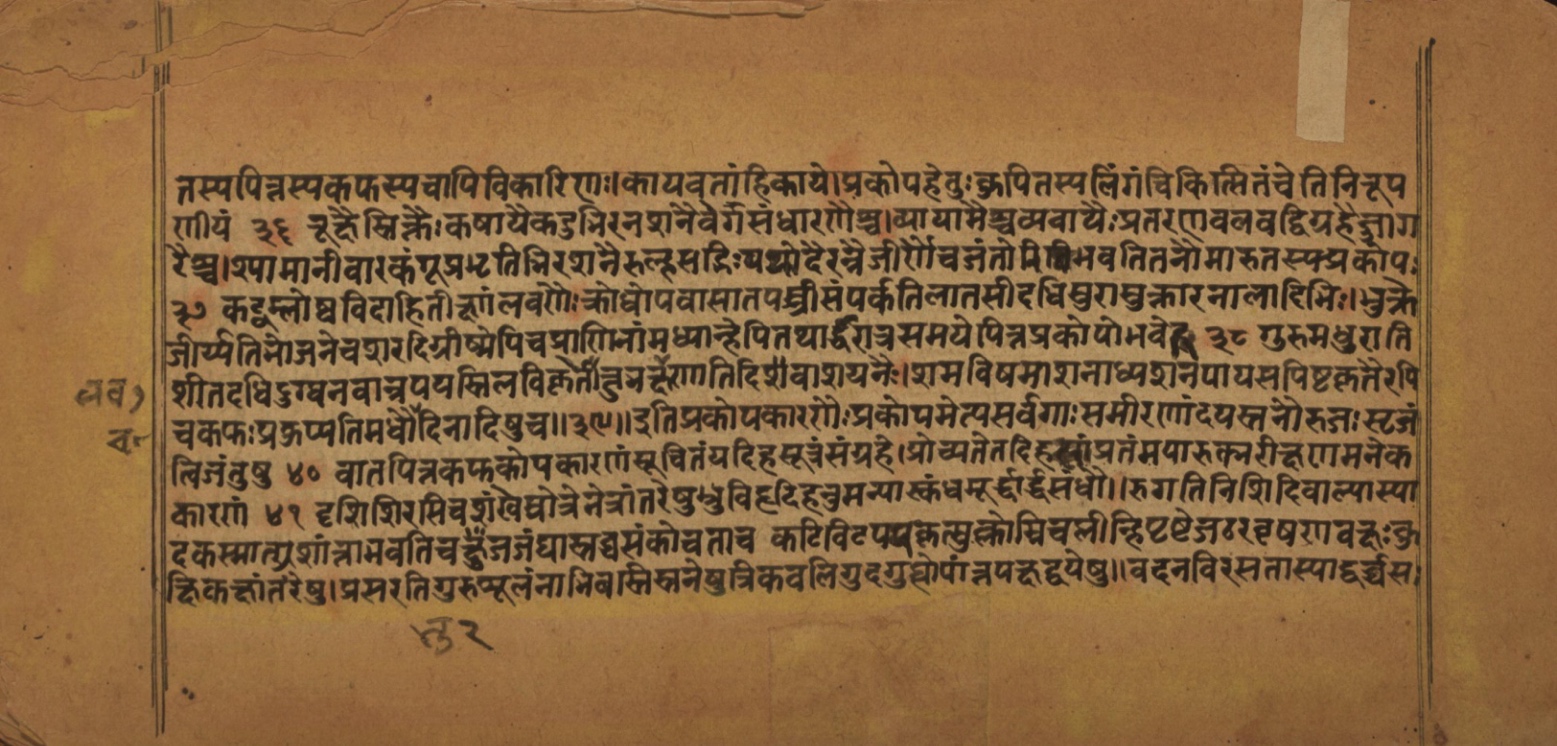 तस्यपित्तस्यकफस्यचापिविकारिणः।कायवतांहिकाये।प्रकोपहेतुःकुपितस्यलिंगंचिकित्सितंचेतिनिरूप
णीयं ३६ रूक्षैस्तिक्तैःकषायैकटुभिरनशनैर्वेगसंधारणैश्च।व्यायामैश्चव्यवायैःप्रतरणबलवद्विग्रहैर्जाग
रैश्च।श्यामानीवारकंगूप्रभृतिभिरशनैरुल्लसद्भिःपयोदैरन्नैजीर्णेचजंतोभवतितनौमारुतस्यप्रकोपः
३७ कट्वम्लोष्णविदाहितीक्ष्णलवणैःक्रोधोपवासातपस्त्रीसंपर्कतिलातसीदधिसुरासुक्तारनालादिभिः।भुक्ते
जीर्य्यतिभोजनेचशरदिग्रीष्मेपिचप्राणिनांमध्यान्हेपितथार्द्धरात्रसमयेपित्तप्रकोपोभवेत् ३८ गुरुमधुराति
शीतदधिदुग्धनवान्नपयस्तिलविकृतीक्षुतिदिवाशयनैः।शमविषमाशनाध्यशनपायसपिष्टकृतैरपि
चकफःप्रकुप्यतिमधौदिनादिषुच॥३९॥इतिप्रकोपकारणैःप्रकोपमेत्यसर्वगाःसमीरणांदयस्तनौरुजःसृजं
तिजंतुषु ४० वातपित्तकफकोपकारणंसूचितंयदिहसूत्रसंग्रहे।प्रोच्यतेतदिहसांप्रतंमयारुक्शरीक्षणमनेक
कारणं ४१ दृशिशिरसिचशंखेघोत्रेनेत्रांतरेषुभ्रुविहृदिहनुमन्यास्कंधमूर्द्धार्द्धसंधौ।रुगतिनिशिदिवाल्पास्या
दकस्मात्प्रशांताभवतिचजंघास्तब्धसंकोचताच कटिविटप
क्षिकक्षांतरेषु।प्रसरतिगुरुशूलंनाभिबस्तिस्तनेषुत्रिकवलिगुदगुह्योपांतपक्षद्वयेषु॥वदनविरसतास्याद्वर्च्चस